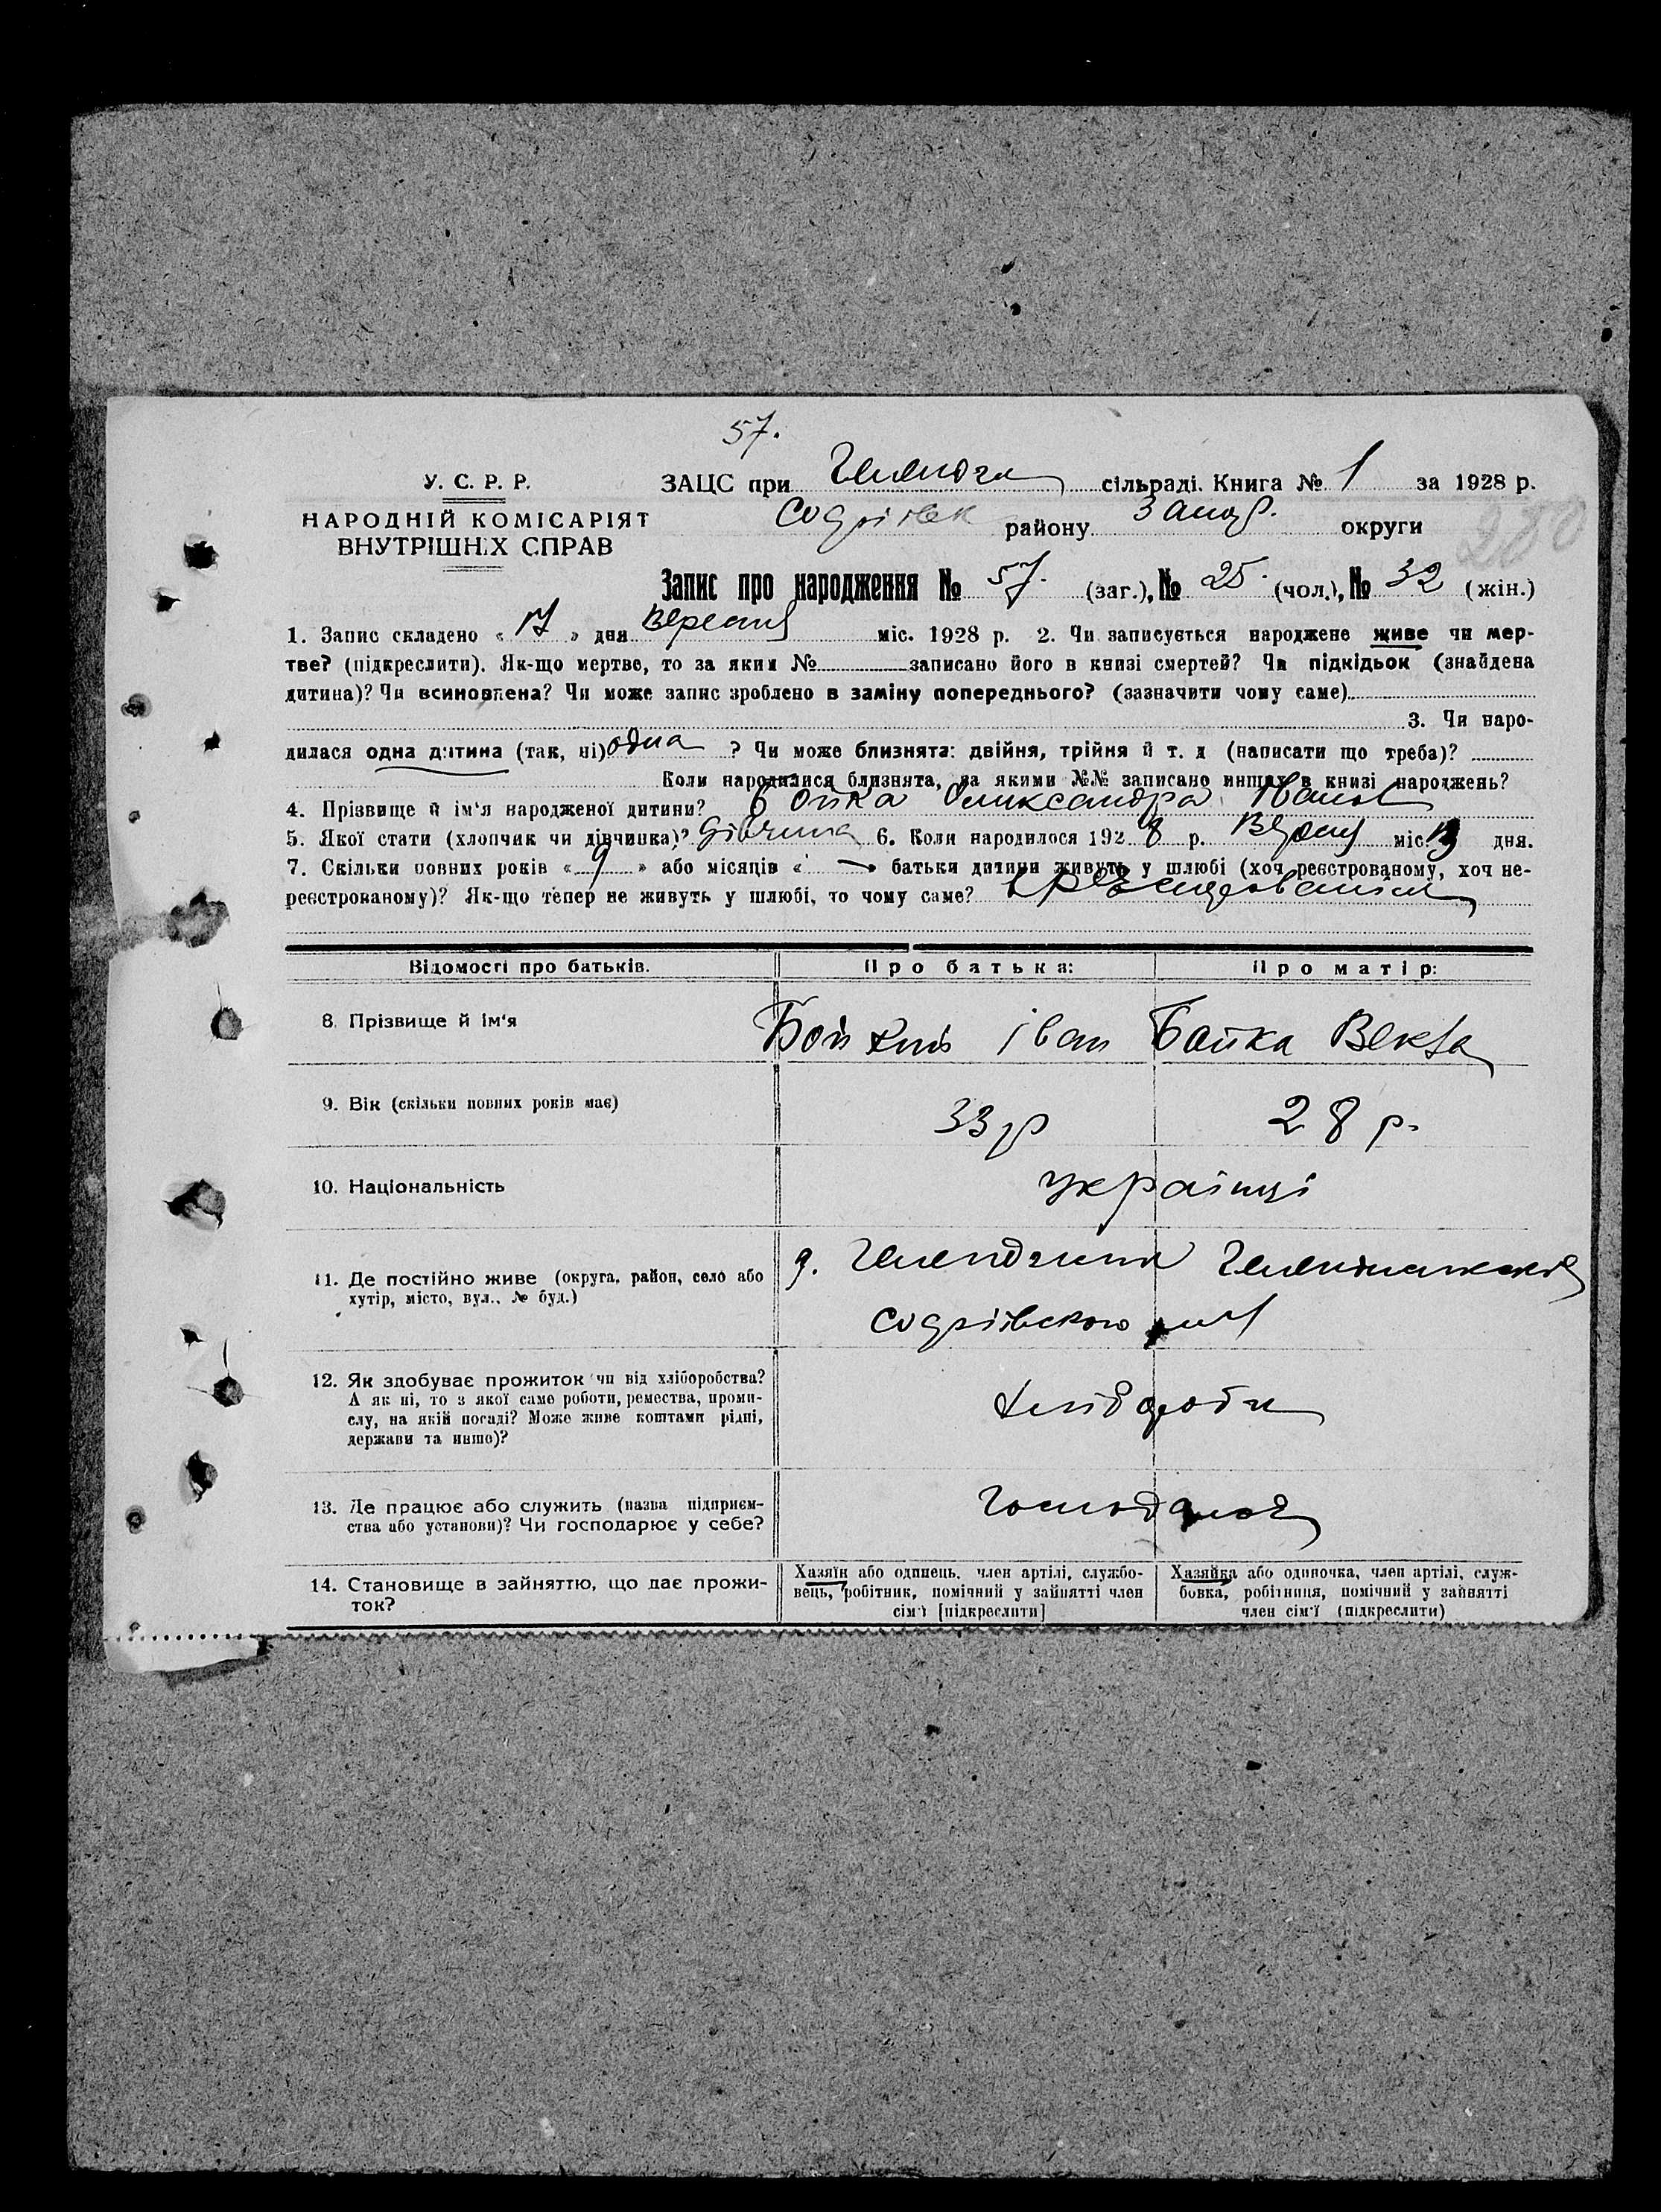 57.
У. С. Р. Р.
НАРОДНІЙ КОМІСАРІЯТ
ВНУТРІШНІХ СПРАВ
ЗАЦС при сільраді. Книга № 1 за 1928 р.
району Запор. округи
280
Запис про народження № 57. (заг.), № 25. (чол.), № 32 (жін.)
1. Запис складено « 17 » дня Вересня міс. 1928 р. 2. Чи записується народжене живе чи мер-
тве? (підкреслити). Як-що мертве, то за яким № записано його в книзі смертей? Чи підкідьок (знайдена
дитина)? Чи всиновлена? Чи може запис зроблено в заміну попереднього? (зазначити чому саме)
3. Чи наро-
дилася одна дитина (так, ні) одна ? Чи може близнята: двійня, трійня й т. д (написати що треба)?
Коли народилися близнята, за якими №№ записано инших в книзі народжень?
4. Прізвище й ім'я народженої дитини? Бойка Олександра Іванов
5. Якої стати (хлопчик чи дівчинка)? дівчина 6. Коли народилося 192 8 р. міс. дня.
7. Скільки повних років « 9 » або місяців « — » батьки дитини живуть у шлюбі (хоч реєстрованому, хоч не-
реєстрованому)? Як-що тепер не живуть у шлюбі, то чому саме?
Відомості про батьків. Про батька: Про матір:
8. Прізвище й ім'я Іван Бойка Векта
9. Вік (скільки повних років має) 33 р 28 р.
10. Національність українці
11. Де постійно живе (округа, район, село або
хутір, місто, вул., № буд.)
12. Як здобуває прожиток чи від хліборобства?
А як ні, то з якої саме роботи, ремества, проми-
слу, на якій посаді? Може живе коштами рідні,
держави та инше)?
13. Де працює або служить (назва підприєм-
ства або установи)? Чи господарює у себе?
14. Становище в зайняттю, що дає прожи-
ток?
Хазяїн або одинець, член артілі, службо-
вець, робітник, помічний у зайнятті член
сім'ї [підкреслити]
Хазяйка або одиночка, член артілі, служ-
бовка, робітниця, помічний у зайнятті
член сім'ї (підкреслити)